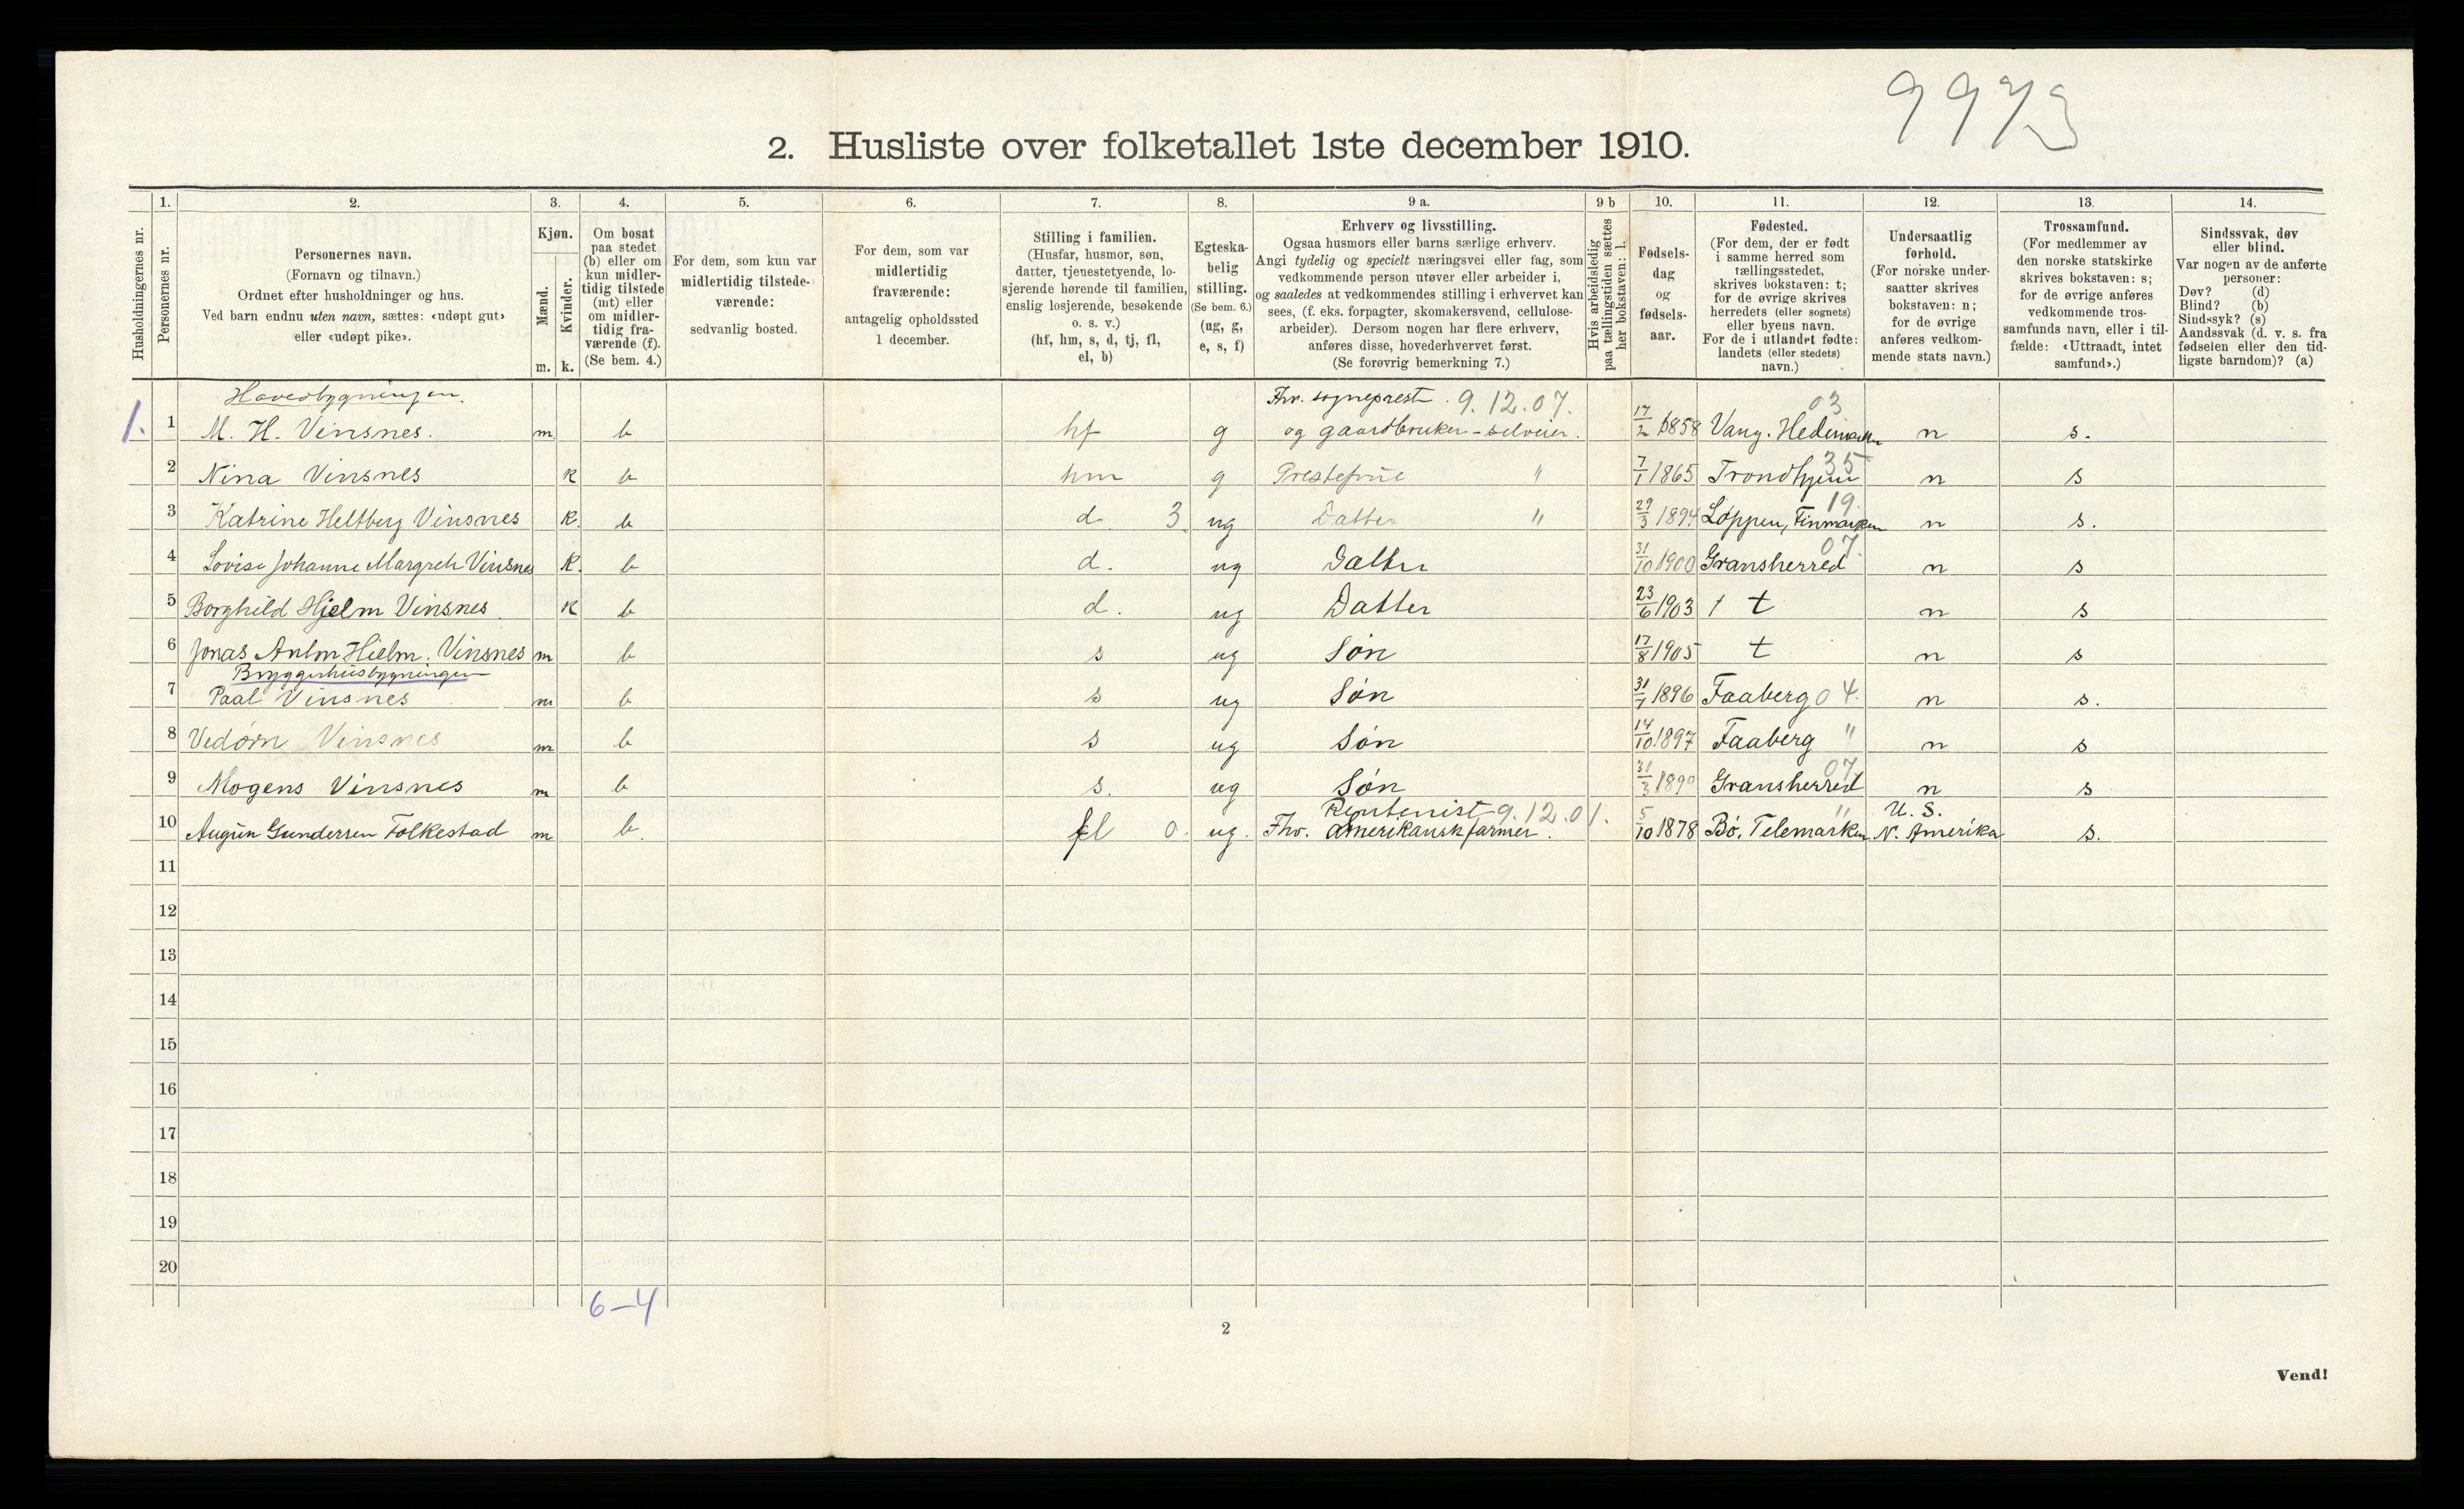 9973
2. Husliste over folketallet 1ste december 1910.
Husholdningernes nr.
1.
Personernes nr.
2.
Personernes navn.
(Fornavn og tilnavn.)
Ordnet efter husholdninger og hus.
Ved barn endnu uten navn, sættes: «udøpt gut»
eller «udøpt pike».
3.
Kjøn.
Mænd.
Kvinder.
m. k.
4.
Om bosat
paa stedet
(b) eller om
kun midler-
tidig tilstede
(mt) eller
om midler-
tidig fra-
værende (f).
(Se bem. 4.)
5.
For dem, som kun var
midlertidig tilstede-
værende:
sedvanlig bosted.
6.
For dem, som var
midlertidig
fraværende:
antagelig opholdssted
1 december.
7.
Stilling i familien.
(Husfar, husmor, søn,
datter, tjenestetyende, lo-
sjerende hørende til familien,
enslig losjerende, besøkende
o. s. v.)
(hf, hm, s, d, tj, fl,
el, b)
8.
Egteska-
belig
stilling.
(Se bem. 6.)
(ug, g,
e, s, f)
9 a.
Erhverv og livsstilling.
Ogsaa husmors eller barns særlige erhverv.
Angi tydelig og specielt næringsvei eller fag, som
vedkommende person utøver eller arbeider i,
og saaledes at vedkommendes stilling i erhvervet kan
sees, (f. eks. forpagter, skomakersvend, cellulose-
arbeider). Dersom nogen har flere erhverv,
anføres disse, hovederhvervet først.
(Se forøvrig bemerkning 7.)
9 b
Hvis arbeidsledig
paa tællingstiden sættes
her bokstaven: l.
10.
Fødsels-
dag
og
fødsels-
aar.
11.
Fødested.
(For dem, der er født
i samme herred som
tællingsstedet,
skrives bokstaven: t;
for de øvrige skrives
herredets (eller sognets)
eller byens navn.
For de i utlandet fødte:
landets (eller stedets)
navn.)
12.
Undersaatlig
forhold.
(For norske under-
saatter skrives
bokstaven: n;
for de øvrige
anføres vedkom-
mende stats navn.)
13.
Trossamfund.
(For medlemmer av
den norske statskirke
skrives bokstaven: s;
for de øvrige anføres
vedkommende tros-
samfunds navn, eller i til-
fælde: «Uttraadt, intet
samfund».)
14.
Sindssvak, døv
eller blind.
Var nogen av de anførte
personer:
Døv? (d)
Blind? (b)
Sindssyk? (s)
Aandssvak (d. v. s. fra
fødselen eller den tid-
ligste barndom)? (a)
Hovedbygningen. Fhv. sogneprest. 9.12.07. 03
1. 1 M. H. Vinsnes. m b hf g og gaardbruker - selveier. 17/2 1858 Vang. Hedemarken n s.
35
2 Nina Vinsnes k b hm g Prestefrue " 7/1 1865 Trondhjem n s
19.
3 Katrine Heltberg Vinsnes k. b d 3 ug Datter " 29/3 1894 Loppen, Finmarken n s.
07.
4 Lovise Johanne Margreth Vinsnes k. b d. ug Datter 31/10 1900 Gransherred n s
5 Borghild Hjelm Vinsnes. k b d. ug Datter 23/6 1903 t n s
6 Jonas Anlm Hielm. Vinsnes m b s ug Søn 17/8 1905 t n s
Bryggerhusbygningen
7 Paal Vinsnes m b s ug Søn 31/7 1896 Faaberg 04. n s.
8 Vedørn Vinsnes m b s ug Søn 14/10 1897 Faaberg " n s
07
9 Mogens Vinsnes m b s. ug Søn 31/3 1899 Gransherred n s
Rentenist 9.12.01. " U. S.
10 Augun Gundersen Folkestad m b. fl 0. ug. Fhv. amerikansk farmer. 5/10 1878 Bø. Telemarken N. Amerika s.
11
12
13
14
15
16
17
18
19
20
6-4
2
Vend!